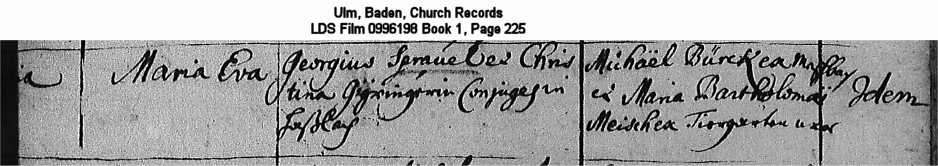 Ulm, Baden, Church Records
LDS Film 0996198 Book 1, Page 225
Maria Eva
Georgius Sprauel et Chris
tina Conjuges in
Michaël Bürck ex
et Maria Bartholomæi
Meisch ex Tiergarten uxor
Idem